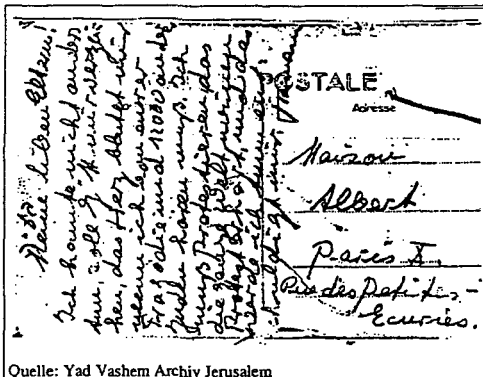 Meine lieben Eltern!
Ich konnte nicht anders
tun, solle G'tt mir verzei-
hen, das Herz blutet mir
wenn ich von eurer
Tragödie und 12000 ander
Juden hören muß. Ich
muß Protestieren das
die ganze Welt meinen
Protest erhört, und das
werde ich tun, ent-
schuldigt mir.
POSTALE
Adresse
Maison
Albert
Paris X.
Rue des petites-
Ecuries.
Quelle: Yad Vashem Archiv Jerusalem